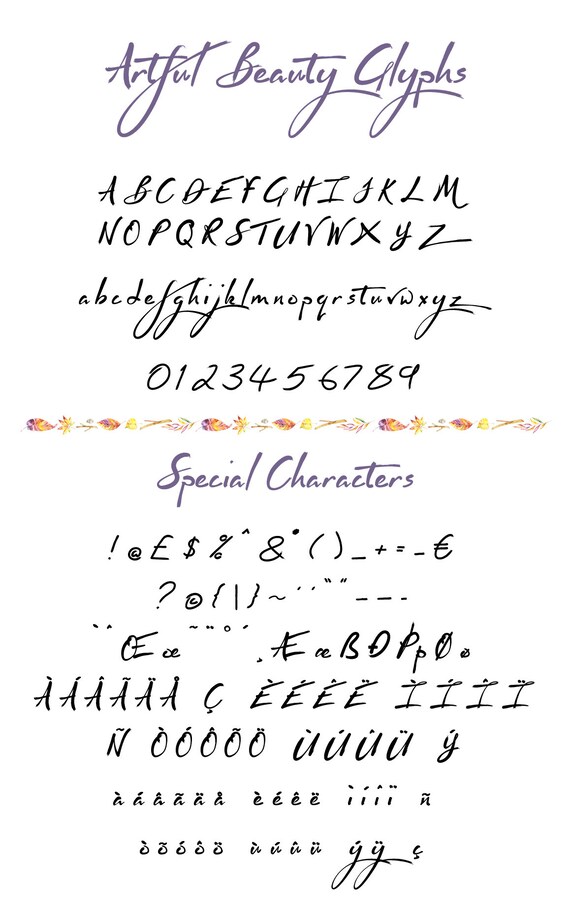 Artful Beauty Glyphs
A B C D E F G H I J K L M
N O P Q R S T U V W X Y Z
a b c d e f g h i j k l m n o p q r s t u v w x y z
0 1 2 3 4 5 6 7 8 9
Special Characters
! @ £ $ % ^ & * ( ) _ + = - €
? © { | } ~ ' ' " " — – -
` ` Œ œ ~ ¨ ° ´ ¸ Æ æ ß Ð Þ þ Ø ø
À Á Â Ã Ä Å Ç È É Ê Ë Ì Í Î Ï
Ñ Ò Ó Ô Õ Ö Ù Ú Û Ü Ý
à á â ã ä å è é ê ë ì í î ï ñ
ò õ ó ô ö ù ú û ü ý ÿ ç